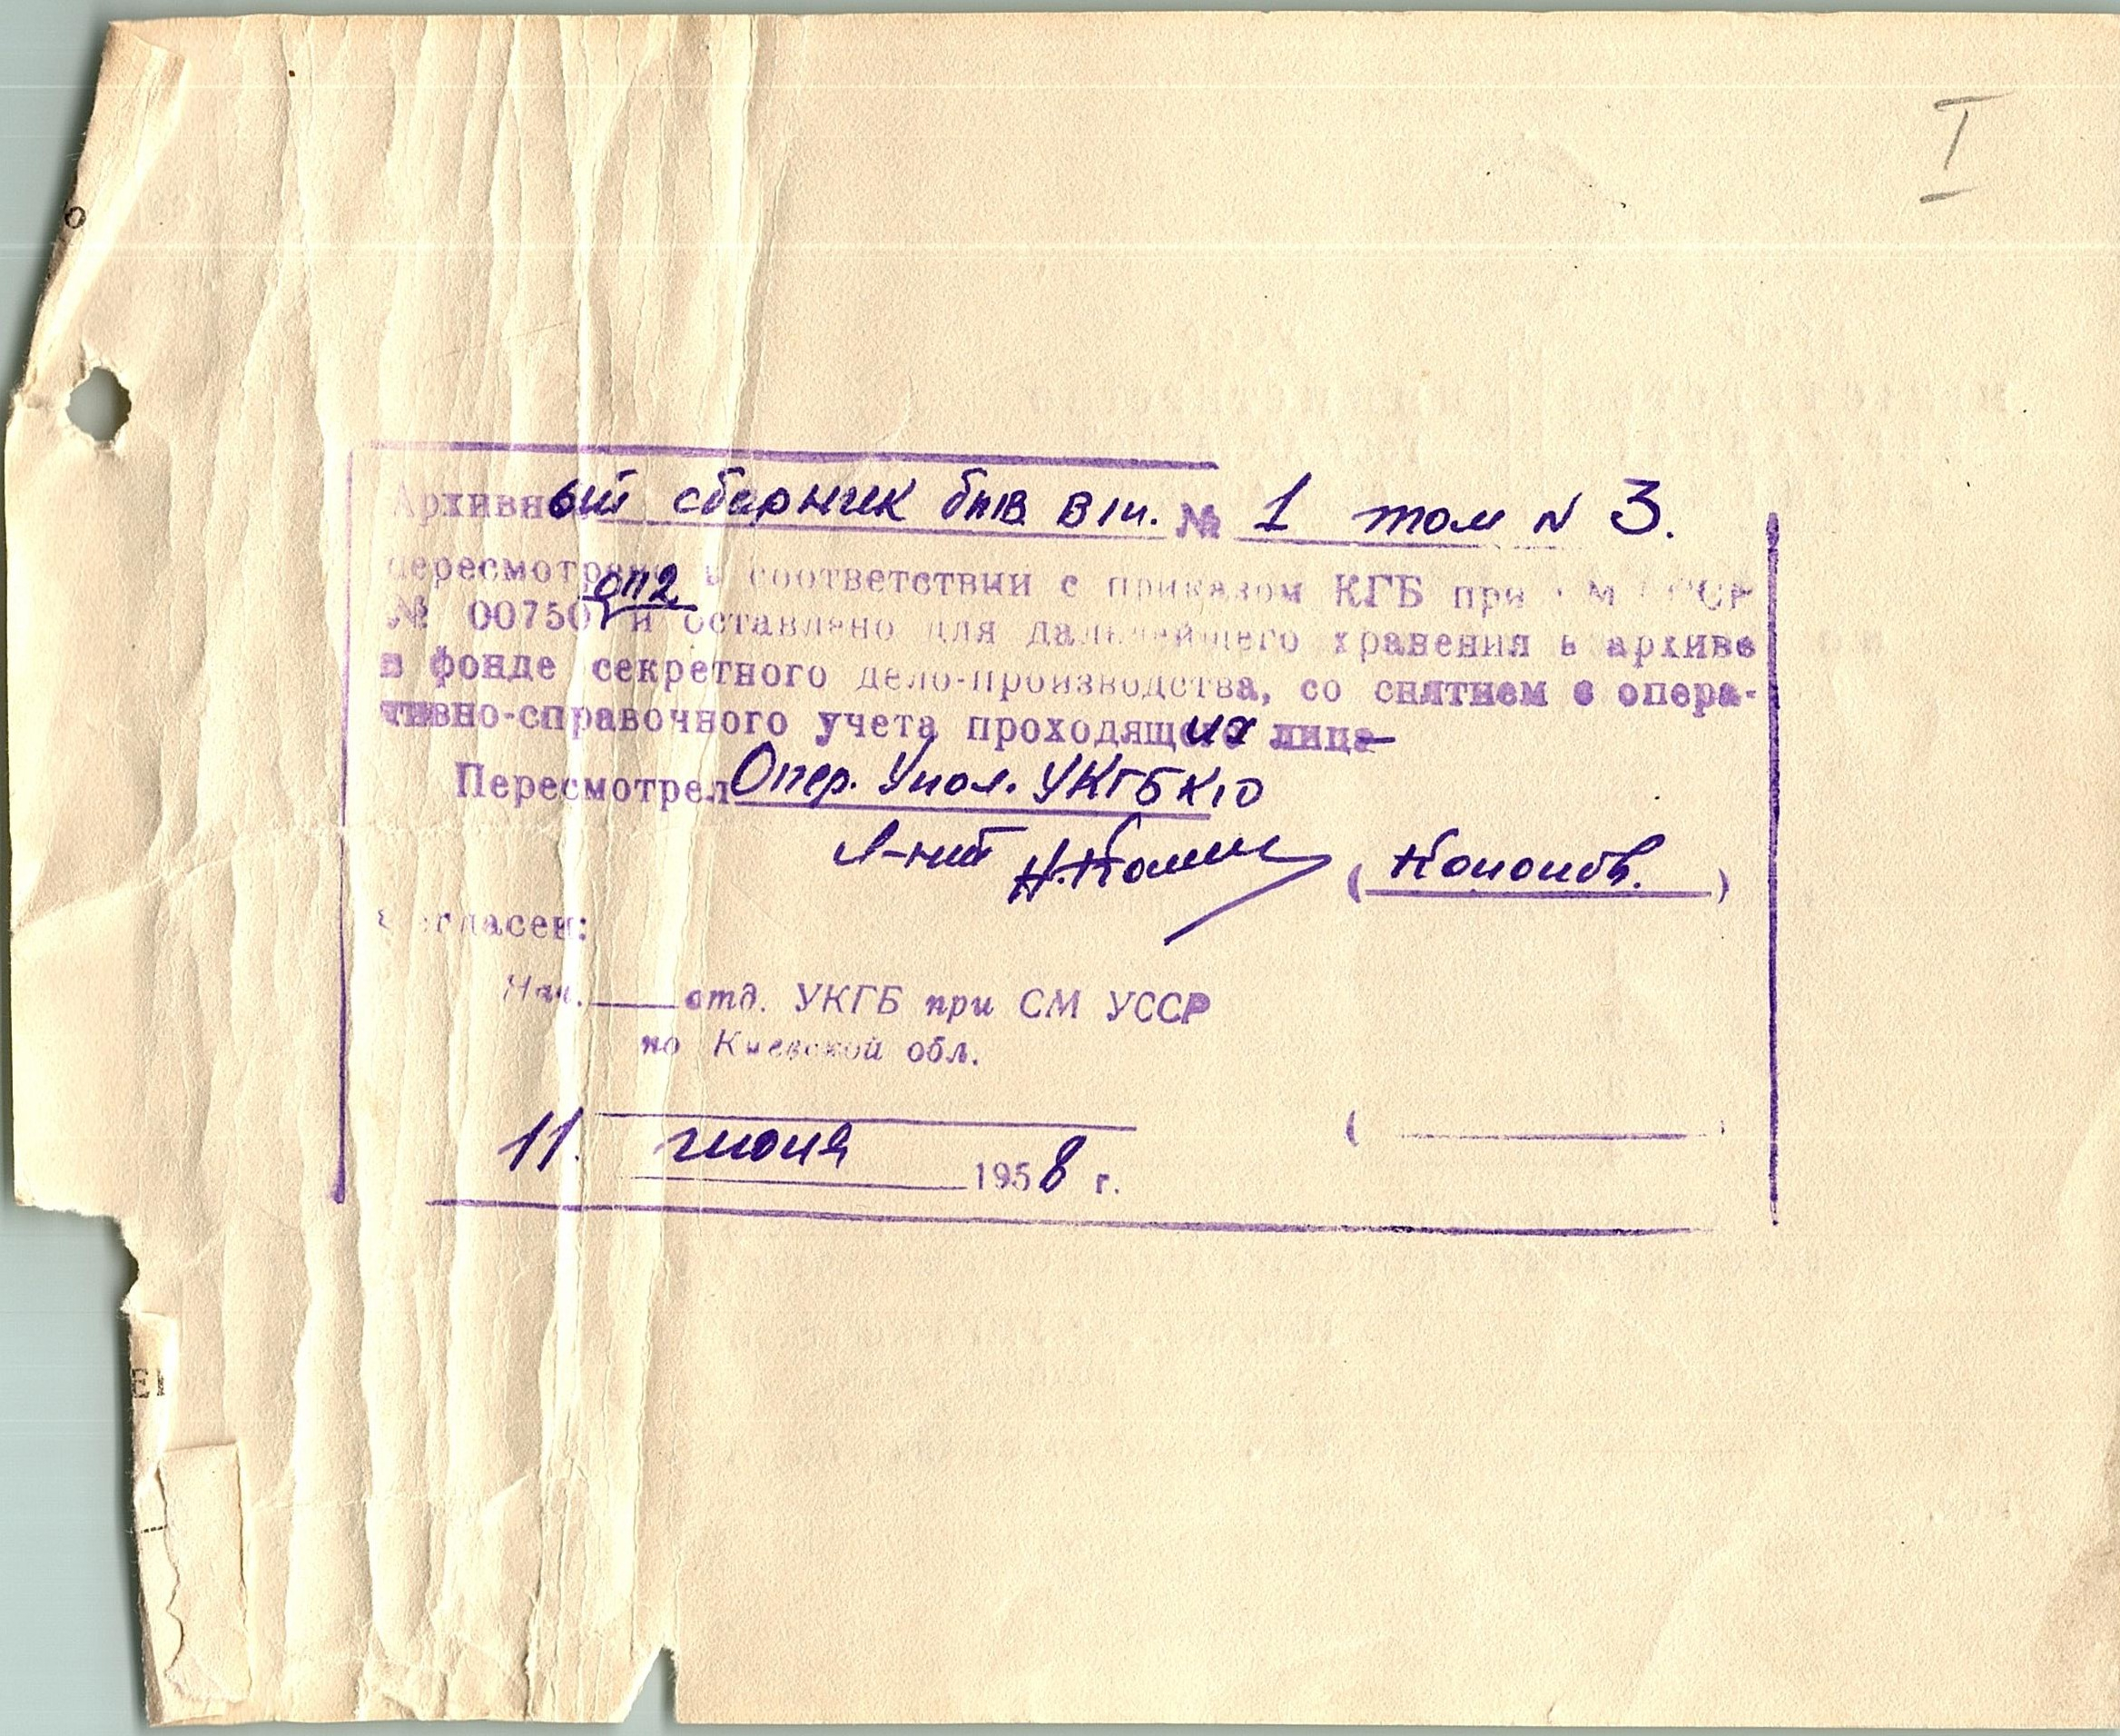 I
Архивный сборник № 1 том N 3.
пересмотрено в соответствии с приказом КГБ при СМ СССР
оп2
№ 00750 и оставлено для дальнейшего хранения в архиве
в фонде секретного дело-производства, со снятием с опера-
тивно-справочного учета проходящих лиц
Пересмотрел Опер. Упол. УКГБ КО
л-нт (Кононов.)
Согласен:
Нач. отд. УКГБ при СМ УССР
по Киевской обл.
( )
11. июня 1958 г.